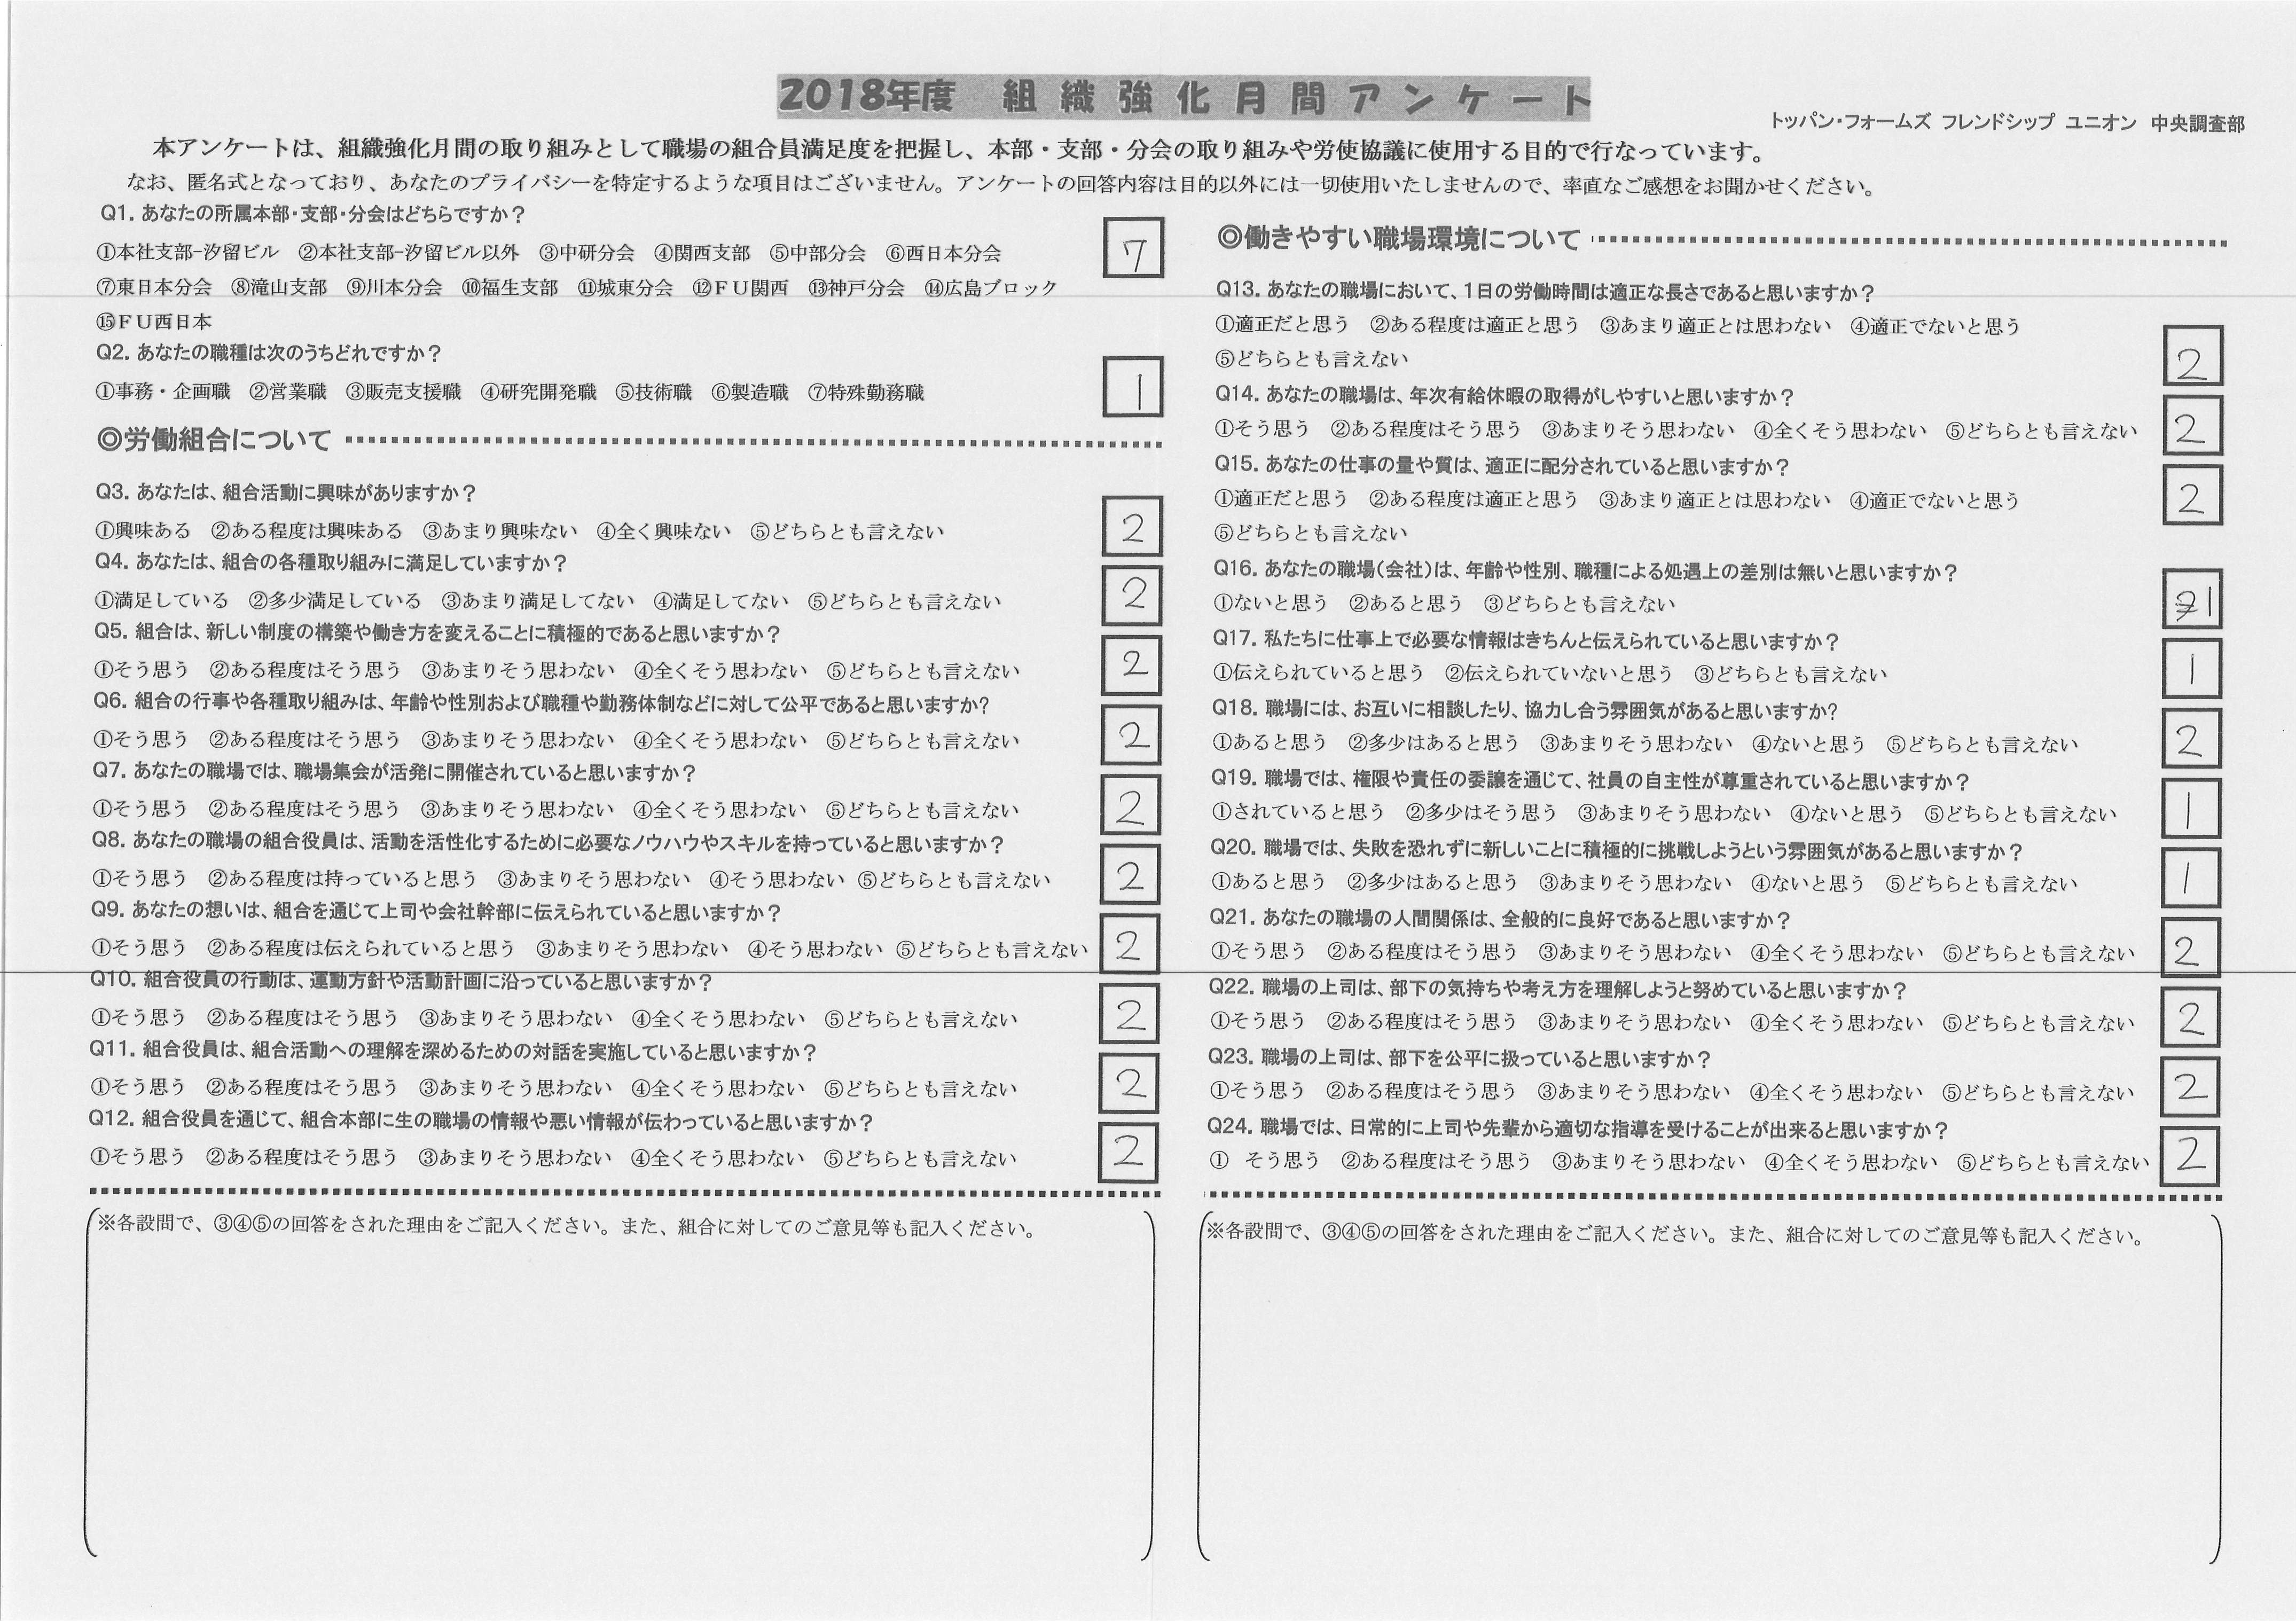 2018年度 組織強化月間アンケート
トッパン・フォームズ フレンドシップ ユニオン 中央調査部
本アンケートは、組織強化月間の取り組みとして職場の組合員満足度を把握し、本部・支部・分会の取り組みや労使協議に使用する目的で行なっています。
なお、匿名式となっており、あなたのプライバシーを特定するような項目はございません。アンケートの回答内容は目的以外には一切使用いたしませんので、率直なご感想をお聞かせください。
Q1. あなたの所属本部・支部・分会はどちらですか？
①本社支部-汐留ビル ②本社支部-汐留ビル以外 ③中研分会 ④関西支部 ⑤中部分会 ⑥西日本分会
7
⑦東日本分会 ⑧滝山支部 ⑨川本分会 ⑩福生支部 ⑪城東分会 ⑫ＦＵ関西 ⑬神戸分会 ⑭広島ブロック
⑮ＦＵ西日本
Q2. あなたの職種は次のうちどれですか？
①事務・企画職 ②営業職 ③販売支援職 ④研究開発職 ⑤技術職 ⑥製造職 ⑦特殊勤務職
1
◎労働組合について
Q3. あなたは、組合活動に興味がありますか？
①興味ある ②ある程度は興味ある ③あまり興味ない ④全く興味ない ⑤どちらとも言えない
2
Q4. あなたは、組合の各種取り組みに満足していますか？
①満足している ②多少満足している ③あまり満足してない ④満足してない ⑤どちらとも言えない
2
Q5. 組合は、新しい制度の構築や働き方を変えることに積極的であると思いますか？
①そう思う ②ある程度はそう思う ③あまりそう思わない ④全くそう思わない ⑤どちらとも言えない
2
Q6. 組合の行事や各種取り組みは、年齢や性別および職種や勤務体制などに対して公平であると思いますか？
①そう思う ②ある程度はそう思う ③あまりそう思わない ④全くそう思わない ⑤どちらとも言えない
2
Q7. あなたの職場では、職場集会が活発に開催されていると思いますか？
①そう思う ②ある程度はそう思う ③あまりそう思わない ④全くそう思わない ⑤どちらとも言えない
2
Q8. あなたの職場の組合役員は、活動を活性化するために必要なノウハウやスキルを持っていると思いますか？
①そう思う ②ある程度は持っていると思う ③あまりそう思わない ④そう思わない ⑤どちらとも言えない
2
Q9. あなたの想いは、組合を通じて上司や会社幹部に伝えられていると思いますか？
①そう思う ②ある程度は伝えられていると思う ③あまりそう思わない ④そう思わない ⑤どちらとも言えない
2
Q10. 組合役員の行動は、運動方針や活動計画に沿っていると思いますか？
①そう思う ②ある程度はそう思う ③あまりそう思わない ④全くそう思わない ⑤どちらとも言えない
2
Q11. 組合役員は、組合活動への理解を深めるための対話を実施していると思いますか？
①そう思う ②ある程度はそう思う ③あまりそう思わない ④全くそう思わない ⑤どちらとも言えない
2
Q12. 組合役員を通じて、組合本部に生の職場の情報や悪い情報が伝わっていると思いますか？
①そう思う ②ある程度はそう思う ③あまりそう思わない ④全くそう思わない ⑤どちらとも言えない
2
※各設問で、③④⑤の回答をされた理由をご記入ください。また、組合に対してのご意見等も記入ください。
◎働きやすい職場環境について
Q13. あなたの職場において、1日の労働時間は適正な長さであると思いますか？
①適正だと思う ②ある程度は適正と思う ③あまり適正とは思わない ④適正でないと思う
⑤どちらとも言えない
2
Q14. あなたの職場は、年次有給休暇の取得がしやすいと思いますか？
①そう思う ②ある程度はそう思う ③あまりそう思わない ④全くそう思わない ⑤どちらとも言えない
2
Q15. あなたの仕事の量や質は、適正に配分されていると思いますか？
①適正だと思う ②ある程度は適正と思う ③あまり適正とは思わない ④適正でないと思う
2
⑤どちらとも言えない
Q16. あなたの職場（会社）は、年齢や性別、職種による処遇上の差別は無いと思いますか？
①ないと思う ②あると思う ③どちらとも言えない
1
Q17. 私たちに仕事上で必要な情報はきちんと伝えられていると思いますか？
①伝えられていると思う ②伝えられていないと思う ③どちらとも言えない
1
Q18. 職場には、お互いに相談したり、協力し合う雰囲気があると思いますか？
①あると思う ②多少はあると思う ③あまりそう思わない ④ないと思う ⑤どちらとも言えない
2
Q19. 職場では、権限や責任の委譲を通じて、社員の自主性が尊重されていると思いますか？
①されていると思う ②多少はそう思う ③あまりそう思わない ④ないと思う ⑤どちらとも言えない
1
Q20. 職場では、失敗を恐れずに新しいことに積極的に挑戦しようという雰囲気があると思いますか？
①あると思う ②多少はあると思う ③あまりそう思わない ④ないと思う ⑤どちらとも言えない
1
Q21. あなたの職場の人間関係は、全般的に良好であると思いますか？
①そう思う ②ある程度はそう思う ③あまりそう思わない ④全くそう思わない ⑤どちらとも言えない
2
Q22. 職場の上司は、部下の気持ちや考え方を理解しようと努めていると思いますか？
①そう思う ②ある程度はそう思う ③あまりそう思わない ④全くそう思わない ⑤どちらとも言えない
2
Q23. 職場の上司は、部下を公平に扱っていると思いますか？
①そう思う ②ある程度はそう思う ③あまりそう思わない ④全くそう思わない ⑤どちらとも言えない
2
Q24. 職場では、日常的に上司や先輩から適切な指導を受けることが出来ると思いますか？
① そう思う ②ある程度はそう思う ③あまりそう思わない ④全くそう思わない ⑤どちらとも言えない
2
※各設問で、③④⑤の回答をされた理由をご記入ください。また、組合に対してのご意見等も記入ください。